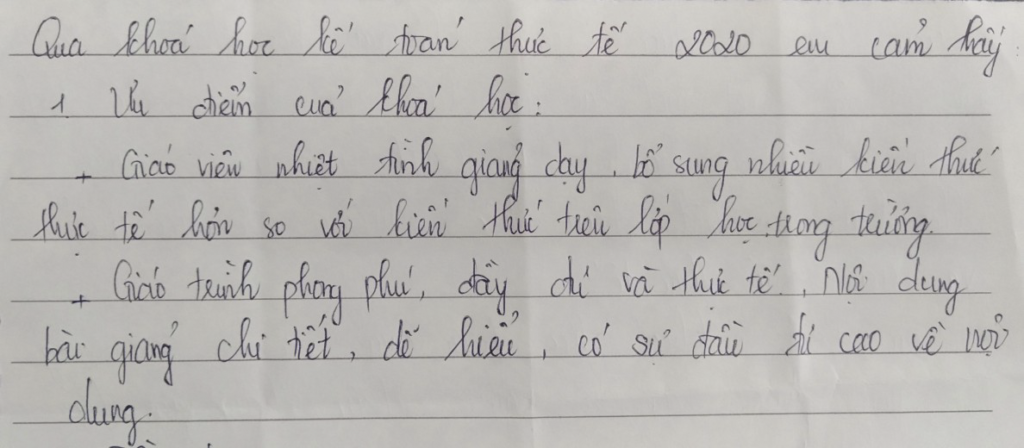 Qua khoá học kế toán thực tế 2020 em cảm thấy:
1. Ưu điểm của khoá học:
+ Giáo viên nhiệt tình giảng dạy, bổ sung nhiều kiến thức
thực tế hơn so với kiến thức trên lớp học trong trường.
+ Giáo trình phong phú, đầy đủ và thực tế. Nội dung
bài giảng chi tiết, dễ hiểu, có sự đầu tư cao về nội
dung.